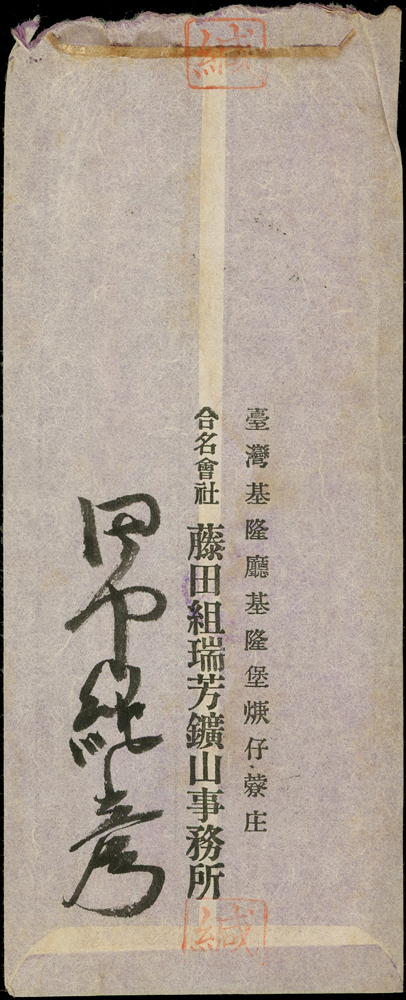 緘
臺灣基隆廳基隆堡焿仔藔庄
合名會社 藤田組瑞芳鑛山事務所
田中純彥
緘